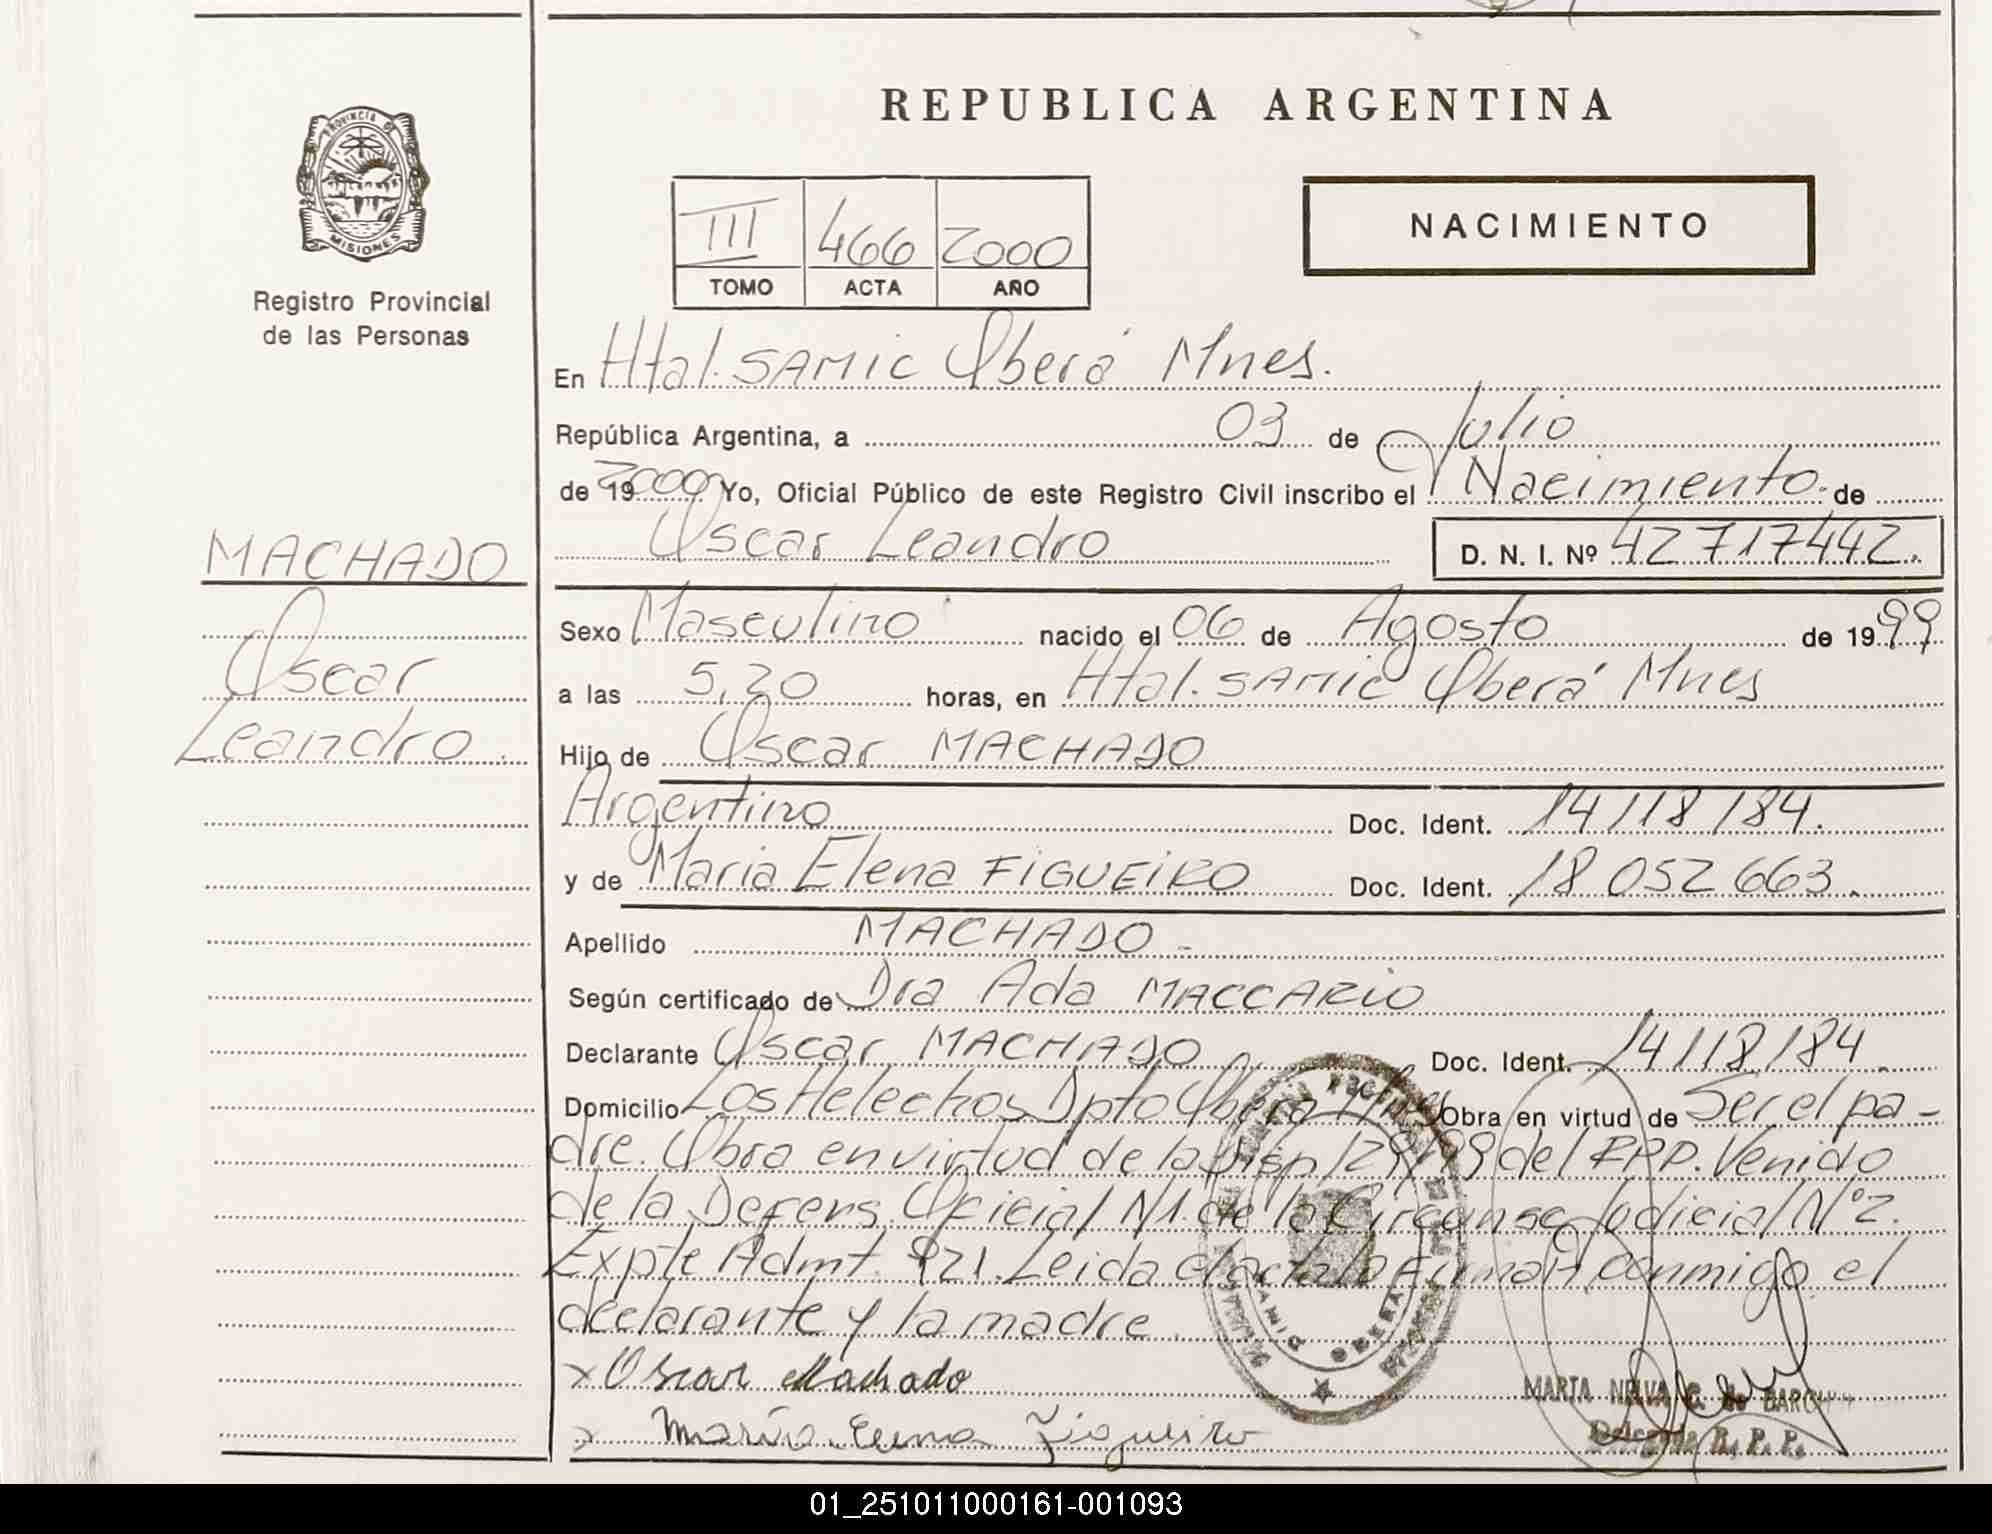 REPUBLICA ARGENTINA
PROVINCIA DE
MISIONES
Registro Provincial
de las Personas
III 466 2000
TOMO ACTA AÑO
NACIMIENTO
En Htal. SAMIC Oberá Mnes.
República Argentina, a 03 de Julio
de 19 2000 Yo, Oficial Público de este Registro Civil inscribo el Nacimiento. de
Oscar Leandro D. N. I. Nº 42717442.
MACHADO
Oscar
Leandro.
Sexo Masculino nacido el 06 de Agosto de 1999
a las 5,20 horas, en Htal. SAMIC Oberá Mnes
Hijo de Oscar MACHADO
Argentino Doc. Ident. 14118184.
y de Maria Elena FIGUEIRO Doc. Ident. 18 052 663.
Apellido MACHADO
Según certificado de Dra Ada MACCARIO
Declarante Oscar MACHADO Doc. Ident. 14118184
Domicilio Los Helechos Dpto Oberá Mnes Obra en virtud de Ser el pa-
dre. Obra en virtud de la Disp 129/99 del RPP. Venido
de la Defens. Oficial N1 de la Circunsc Judicial Nº2.
Expte Admt. 921. Leida el acta la Firman conmigo el
declarante y la madre.
x Oscar Machado
x María Elena Figueiro
MARTA NELVA G. de
Delegada R. P. P.
01_251011000161-001093